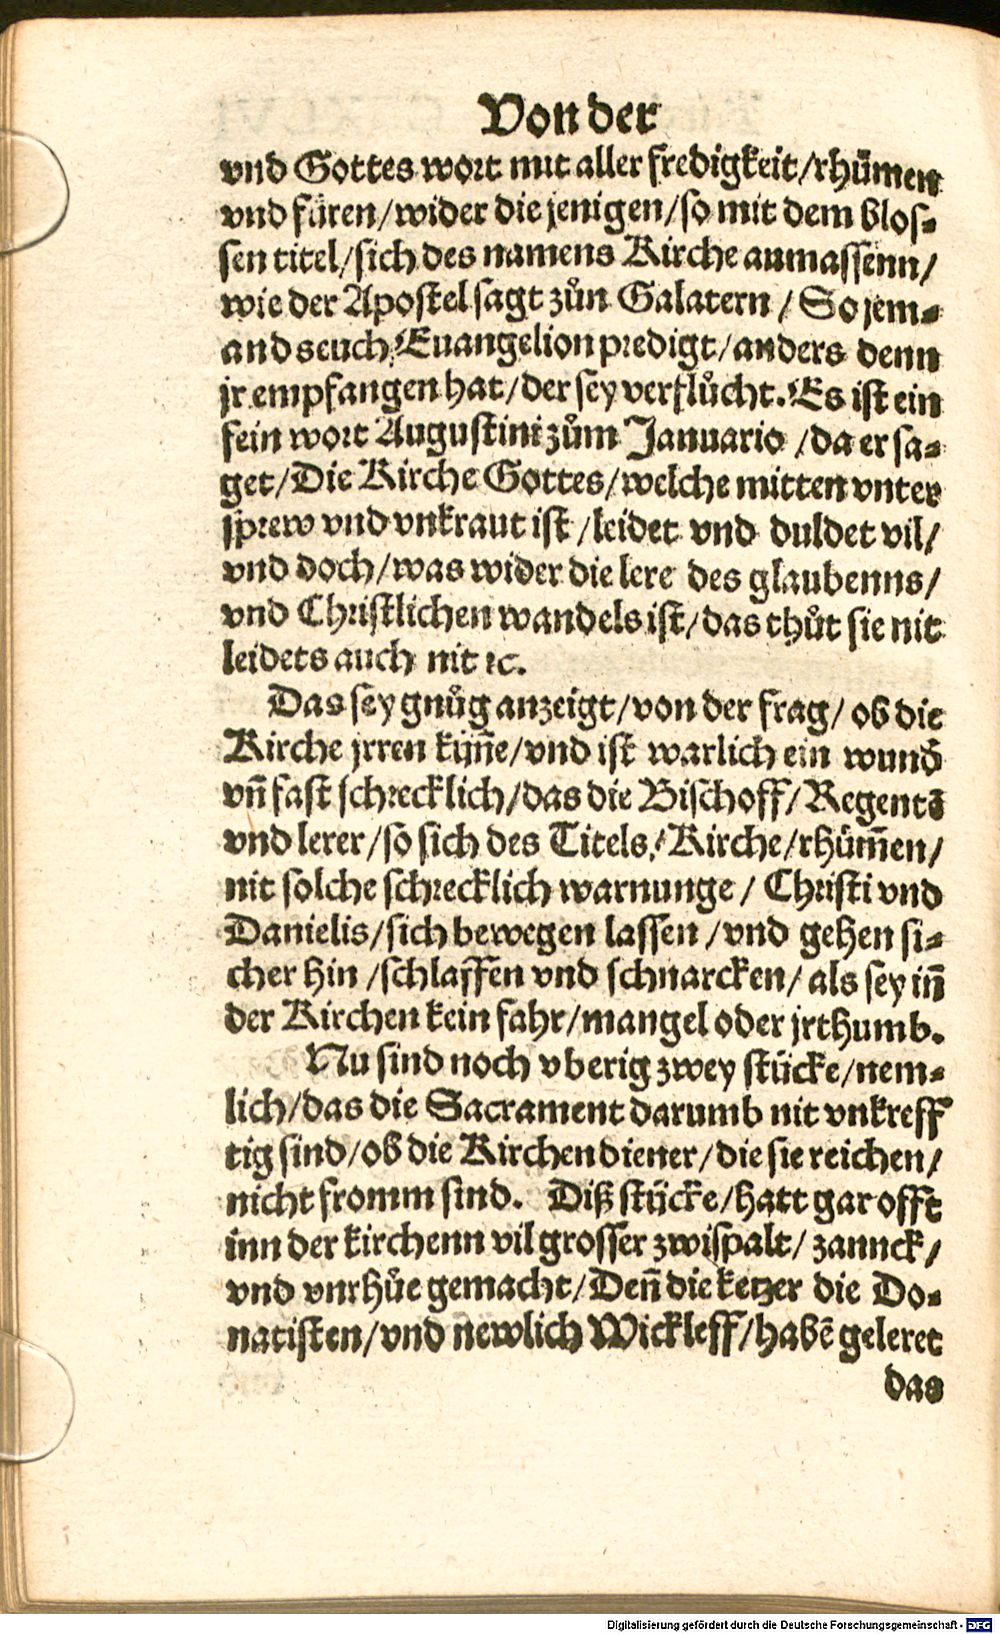 Von der
vnd Gottes wort mit aller fredigkeit/rhümen
vnd füren/wider die jenigen/so mit dem blos-
sen titel/sich des namens Kirche anmassenn/
wie der Apostel sagt zůn Galatern / So jem-
ands euch Euangelion predigt/anders denn
jr empfangen hat/der sey verflůcht. Es ist ein
fein wort Augustini zům Januario /da er sa-
get/Die Kirche Gottes/welche mitten vnter
sprew vnd vnkraut ist /leidet vnd duldet vil/
vnd doch/was wider die lere des glaubenns/
vnd Christlichen wandels ist/das thůt sie nit
leidets auch nit ꝛc.
Das sey gnůg anzeigt/von der frag/ ob die
Kirche jrren küñe/vnd ist warlich ein wund̃
vñ fast schrecklich/das die Bischoff/ Regentẽ
vnd lerer/so sich des Titels/Kirche/rhüm̃en/
nit solche schrecklich warnunge/ Christi vnd
Danielis/sich bewegen lassen /vnd gehen si-
cher hin /schlaffen vnd schnarcken/ als sey iñ
der Kirchen kein fahr/mangel oder jrthumb.
Nu sind noch vberig zwey stücke/nem-
lich/das die Sacrament darumb nit vnkreff
tig sind/ob die Kirchendiener/die sie reichen/
nicht fromm sind. Diß stücke/hatt gar offt
inn der kirchenn vil grosser zwispalt/ zannck/
vnd vnrhůe gemacht/Deñ die ketzer die Do-
natisten/vnd newlich Wickleff/habẽ geleret
das
Digitalisierung gefördert durch die Deutsche Forschungsgemeinschaft - DFG